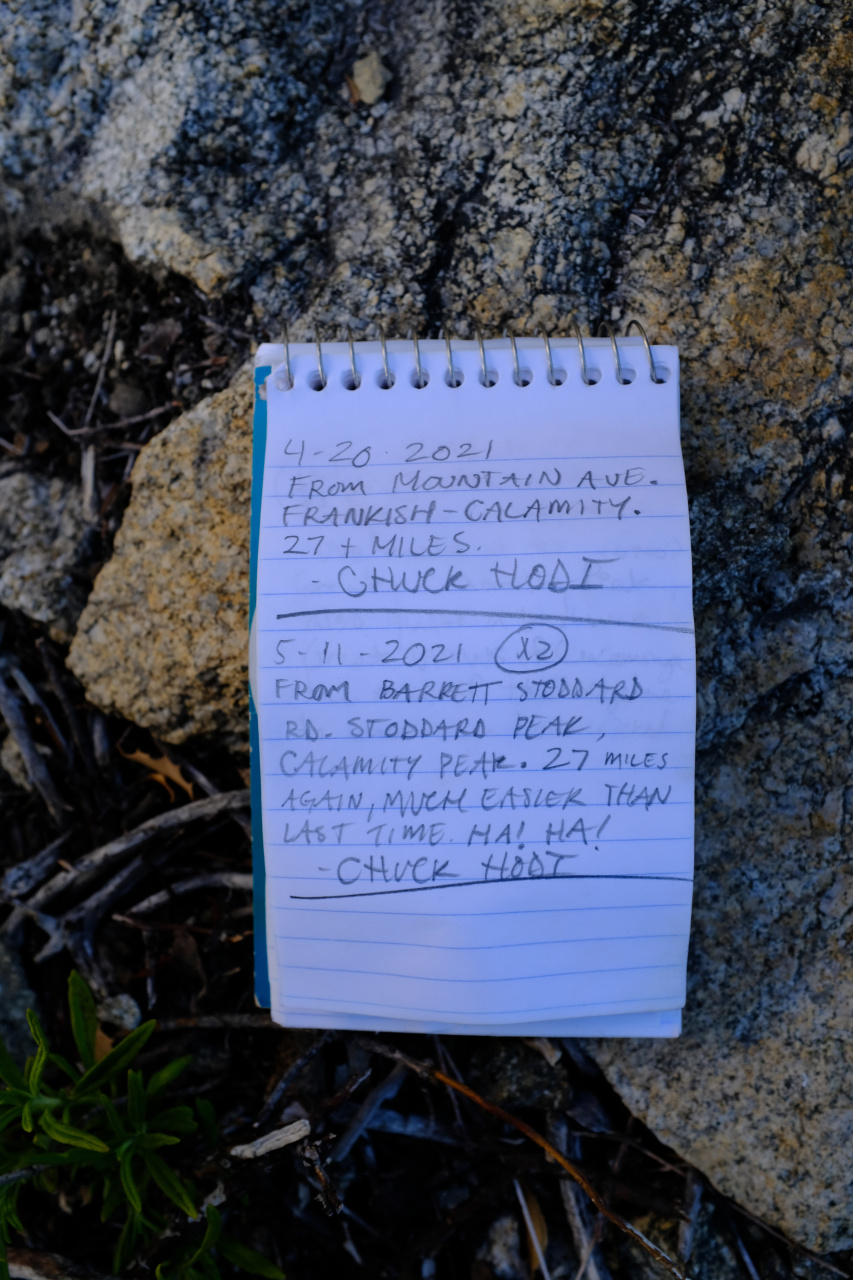 4-20-2021
FROM MOUNTAIN AVE.
FRANKISH-CALAMITY.
27+ MILES.
- CHUCK HODI
5-11-2021 X2
FROM BARRETT STODDARD
RD. STODDARD PEAK,
CALAMITY PEAK. 27 MILES
AGAIN, MUCH EASIER THAN
LAST TIME. HA! HA!
- CHUCK HODI